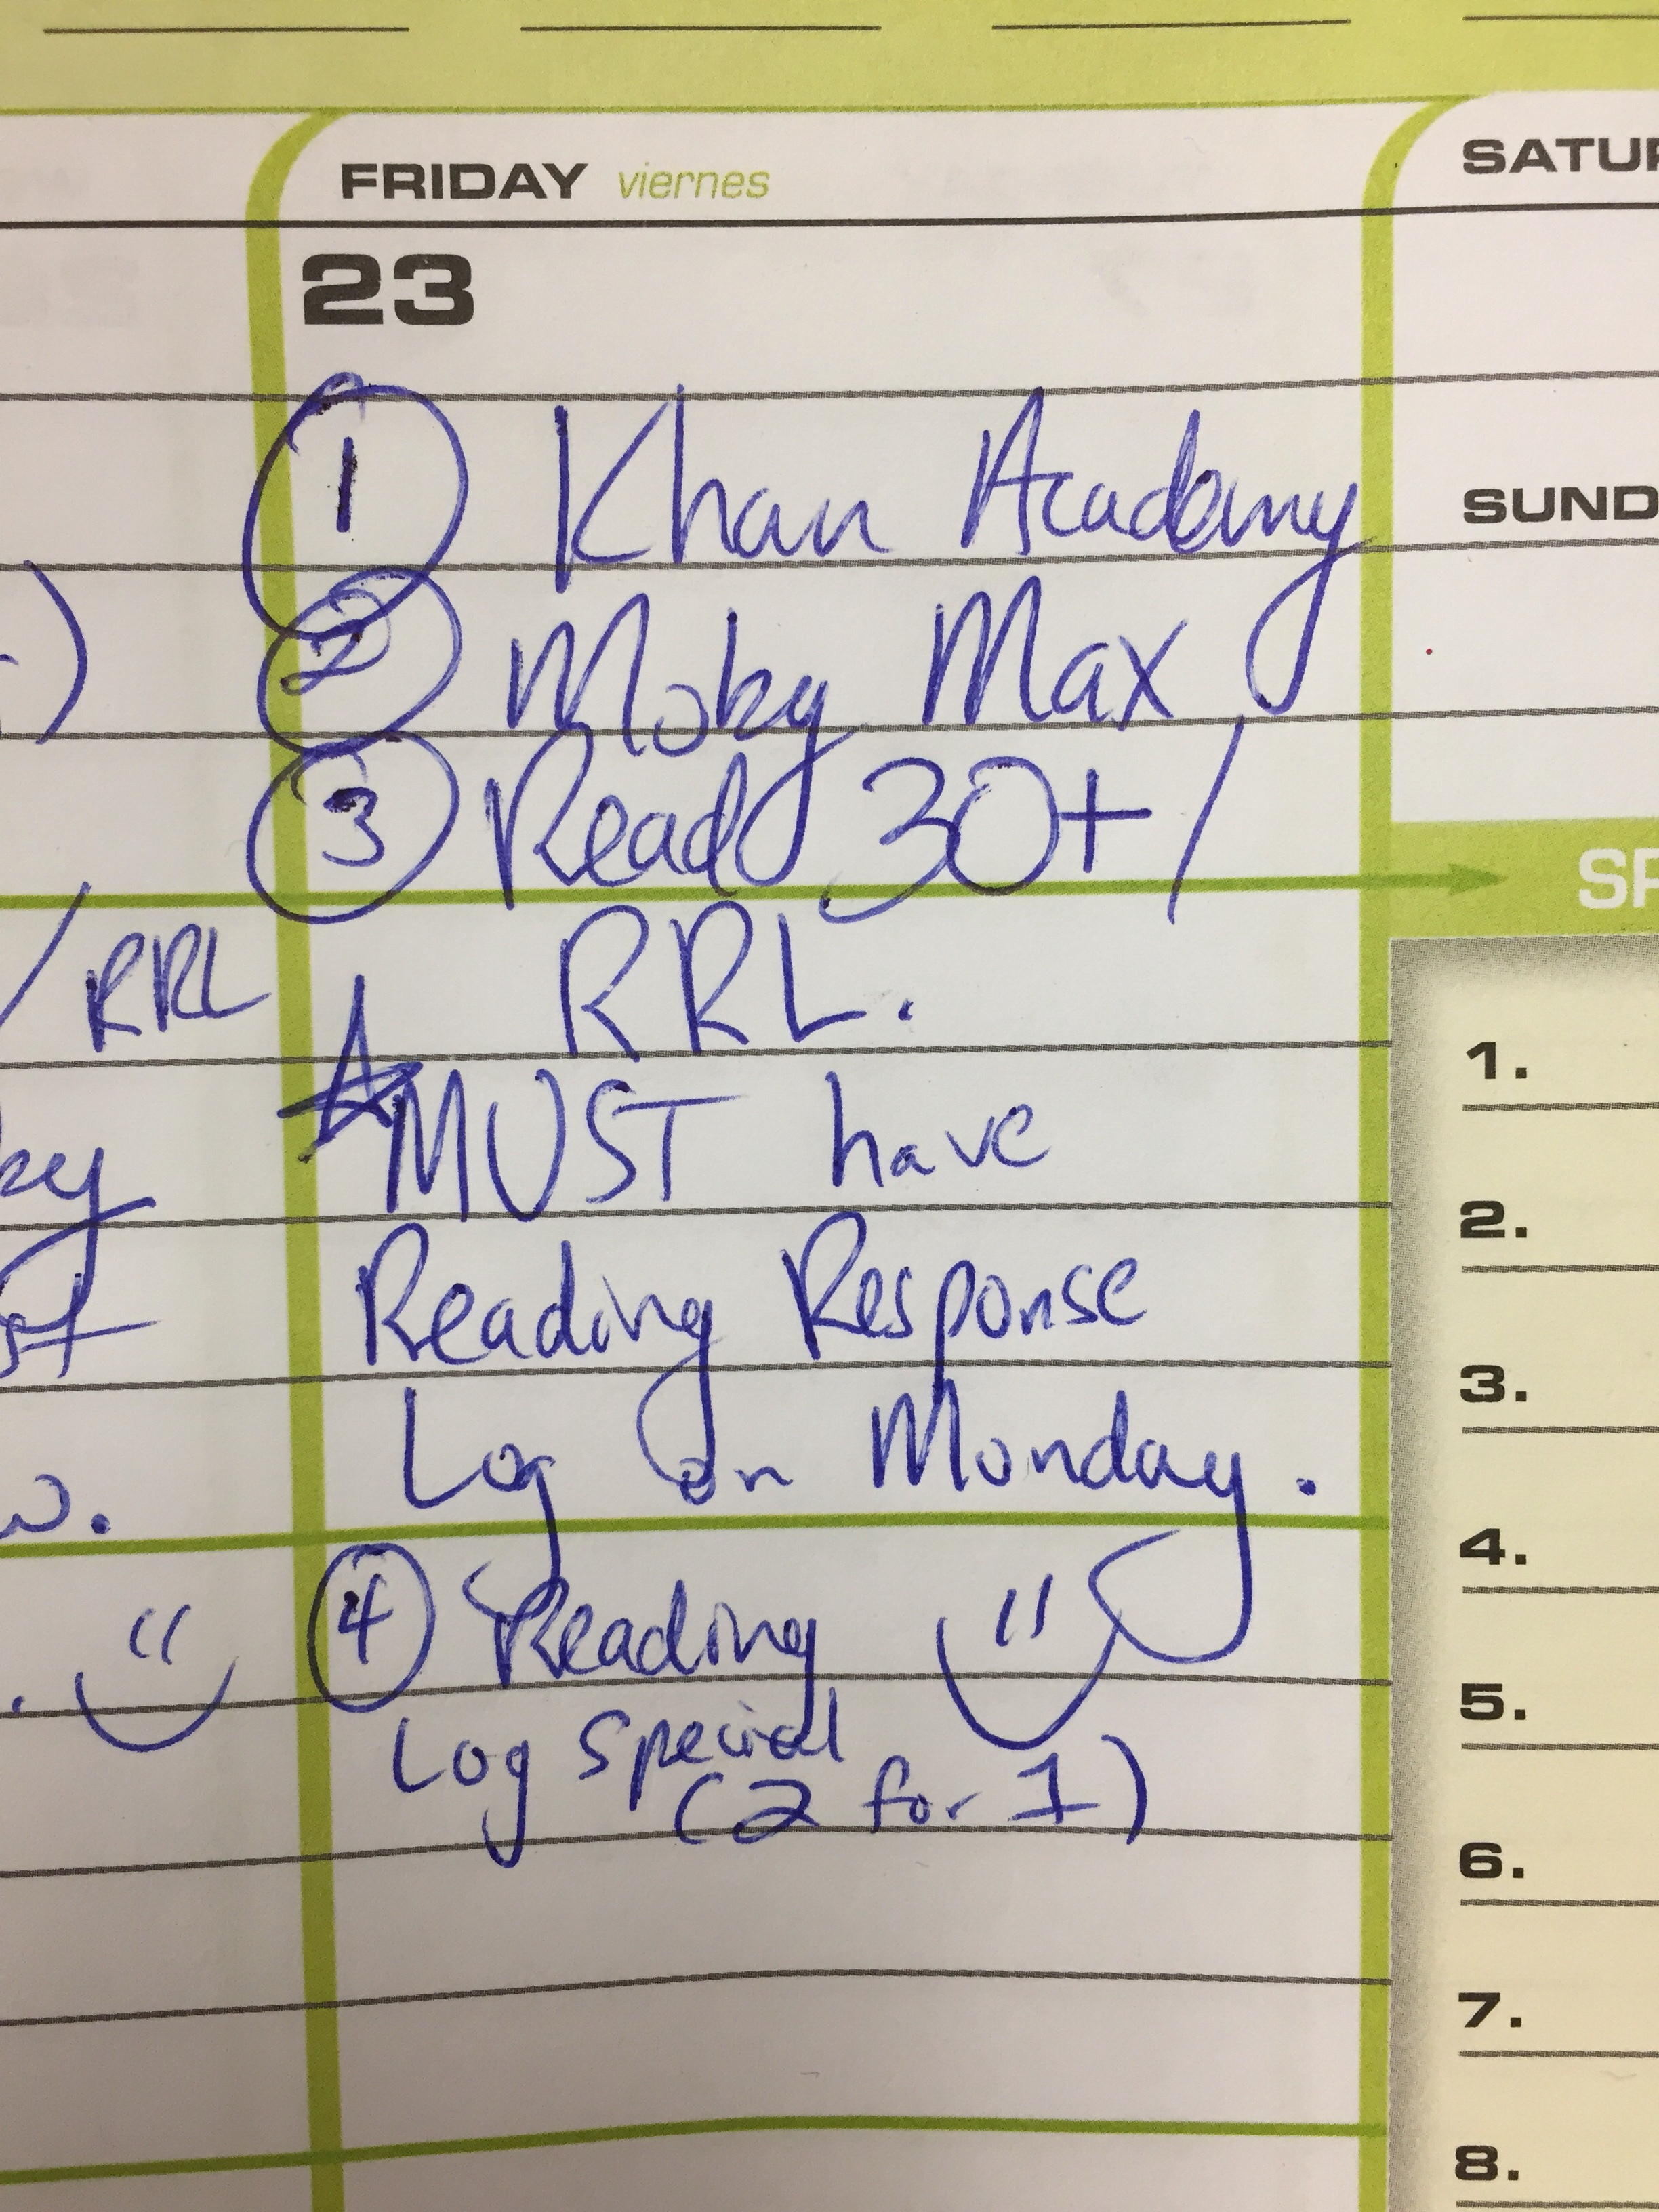 FRIDAY viernes
23
① Khan Academy
② Moby Max
③ Read 30+/
RRL.
☆ MUST have
Reading Response
Log on Monday.
④ Reading
Log Special
(2 for 1)
/RRL
SATUR
SUND
SP
1.
2.
3.
4.
5.
6.
7.
8.